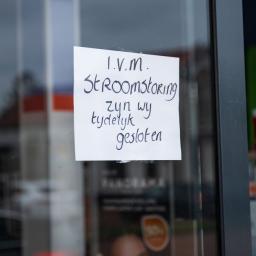 I.V.M.
STROOMSTORING
ZYN WY
tydelyk
gesloten
PANORAMA